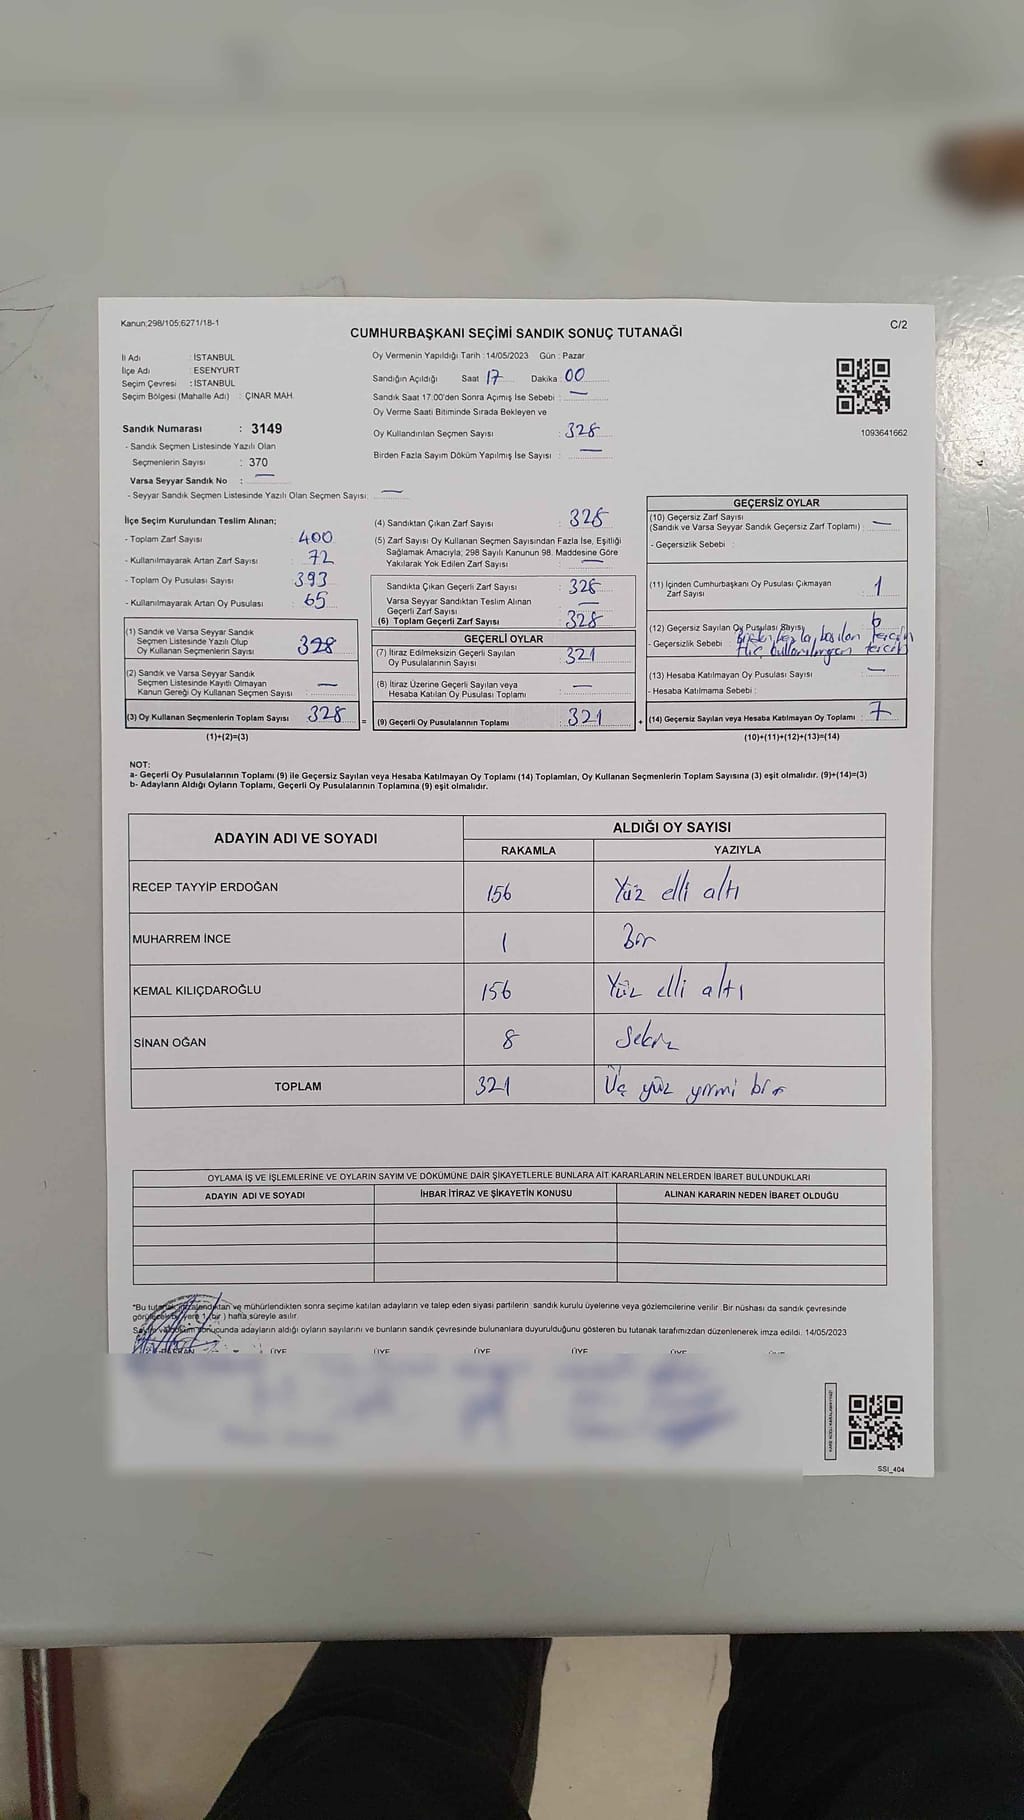 Kanun;298/105;6271/18-1
C/2
CUMHURBAŞKANI SEÇİMİ SANDIK SONUÇ TUTANAĞI
İl Adı : İSTANBUL
İlçe Adı : ESENYURT
Seçim Çevresi : İSTANBUL
Seçim Bölgesi (Mahalle Adı) : ÇINAR MAH.
Sandık Numarası : 3149
- Sandık Seçmen Listesinde Yazılı Olan
Seçmenlerin Sayısı : 370
Varsa Seyyar Sandık No : —
- Seyyar Sandık Seçmen Listesinde Yazılı Olan Seçmen Sayısı: —
Oy Vermenin Yapıldığı Tarih :14/05/2023 Gün : Pazar
Sandığın Açıldığı Saat 17 Dakika : 00
Sandık Saat 17.00'den Sonra Açımış İse Sebebi : —
Oy Verme Saati Bitiminde Sırada Bekleyen ve
Oy Kullandırılan Seçmen Sayısı : 328
Birden Fazla Sayım Döküm Yapılmış İse Sayısı : —
1093641662
İlçe Seçim Kurulundan Teslim Alınan;
- Toplam Zarf Sayısı : 400
- Kullanılmayarak Artan Zarf Sayısı : 72
- Toplam Oy Pusulası Sayısı : 393
- Kullanılmayarak Artan Oy Pusulası : 65
(1) Sandık ve Varsa Seyyar Sandık
Seçmen Listesinde Yazılı Olup
Oy Kullanan Seçmenlerin Sayısı : 328
(2) Sandık ve Varsa Seyyar Sandık
Seçmen Listesinde Kayıtlı Olmayan
Kanun Gereği Oy Kullanan Seçmen Sayısı : —
(3) Oy Kullanan Seçmenlerin Toplam Sayısı : 328
(1)+(2)=(3)
=
(4) Sandıktan Çıkan Zarf Sayısı : 328
(5) Zarf Sayısı Oy Kullanan Seçmen Sayısından Fazla İse, Eşitliği
Sağlamak Amacıyla; 298 Sayılı Kanunun 98. Maddesine Göre
Yakılarak Yok Edilen Zarf Sayısı : —
Sandıkta Çıkan Geçerli Zarf Sayısı : 328
Varsa Seyyar Sandıktan Teslim Alınan
Geçerli Zarf Sayısı : —
(6) Toplam Geçerli Zarf Sayısı : 328
GEÇERLİ OYLAR
(7) İtiraz Edilmeksizin Geçerli Sayılan
Oy Pusulalarının Sayısı : 321
(8) İtiraz Üzerine Geçerli Sayılan veya
Hesaba Katılan Oy Pusulası Toplamı : —
(9) Geçerli Oy Pusulalarının Toplamı : 321
+
GEÇERSİZ OYLAR
(10) Geçersiz Zarf Sayısı
(Sandık ve Varsa Seyyar Sandık Geçersiz Zarf Toplamı) : —
- Geçersizlik Sebebi :
(11) İçinden Cumhurbaşkanı Oy Pusulası Çıkmayan
Zarf Sayısı : 1
(12) Geçersiz Sayılan Oy Pusulası Sayısı : 6
- Geçersizlik Sebebi : Birden fazla basılan tercih
Hiç kullanılmayan tercih
(13) Hesaba Katılmayan Oy Pusulası Sayısı : —
- Hesaba Katılmama Sebebi :
(14) Geçersiz Sayılan veya Hesaba Katılmayan Oy Toplamı : 7
(10)+(11)+(12)+(13)=(14)
NOT:
a- Geçerli Oy Pusulalarının Toplamı (9) ile Geçersiz Sayılan veya Hesaba Katılmayan Oy Toplamı (14) Toplamları, Oy Kullanan Seçmenlerin Toplam Sayısına (3) eşit olmalıdır. (9)+(14)=(3)
b- Adayların Aldığı Oyların Toplamı, Geçerli Oy Pusulalarının Toplamına (9) eşit olmalıdır.
ADAYIN ADI VE SOYADI ALDIĞI OY SAYISI
RAKAMLA YAZIYLA
RECEP TAYYİP ERDOĞAN 156 Yüz elli altı
MUHARREM İNCE 1 Bir
KEMAL KILIÇDAROĞLU 156 Yüz elli altı
SİNAN OĞAN 8 Sekiz
TOPLAM 321 Üç yüz yirmi bir
OYLAMA İŞ VE İŞLEMLERİNE VE OYLARIN SAYIM VE DÖKÜMÜNE DAİR ŞİKAYETLERLE BUNLARA AİT KARARLARIN NELERDEN İBARET BULUNDUKLARI
ADAYIN ADI VE SOYADI İHBAR İTİRAZ VE ŞİKAYETİN KONUSU ALINAN KARARIN NEDEN İBARET OLDUĞU
*Bu tutanak imzalandıktan ve mühürlendikten sonra seçime katılan adayların ve talep eden siyasi partilerin sandık kurulu üyelerine veya gözlemcilerine verilir. Bir nüshası da sandık çevresinde
görülecek bir yere 1 ( bir ) hafta süreyle asılır.
sonucunda adayların aldığı oyların sayılarını ve bunların sandık çevresinde bulunanlara duyurulduğunu gösteren bu tutanak tarafımızdan düzenlenerek imza edildi. 14/05/2023
ÜYE ÜYE ÜYE ÜYE ÜYE
SSI_404